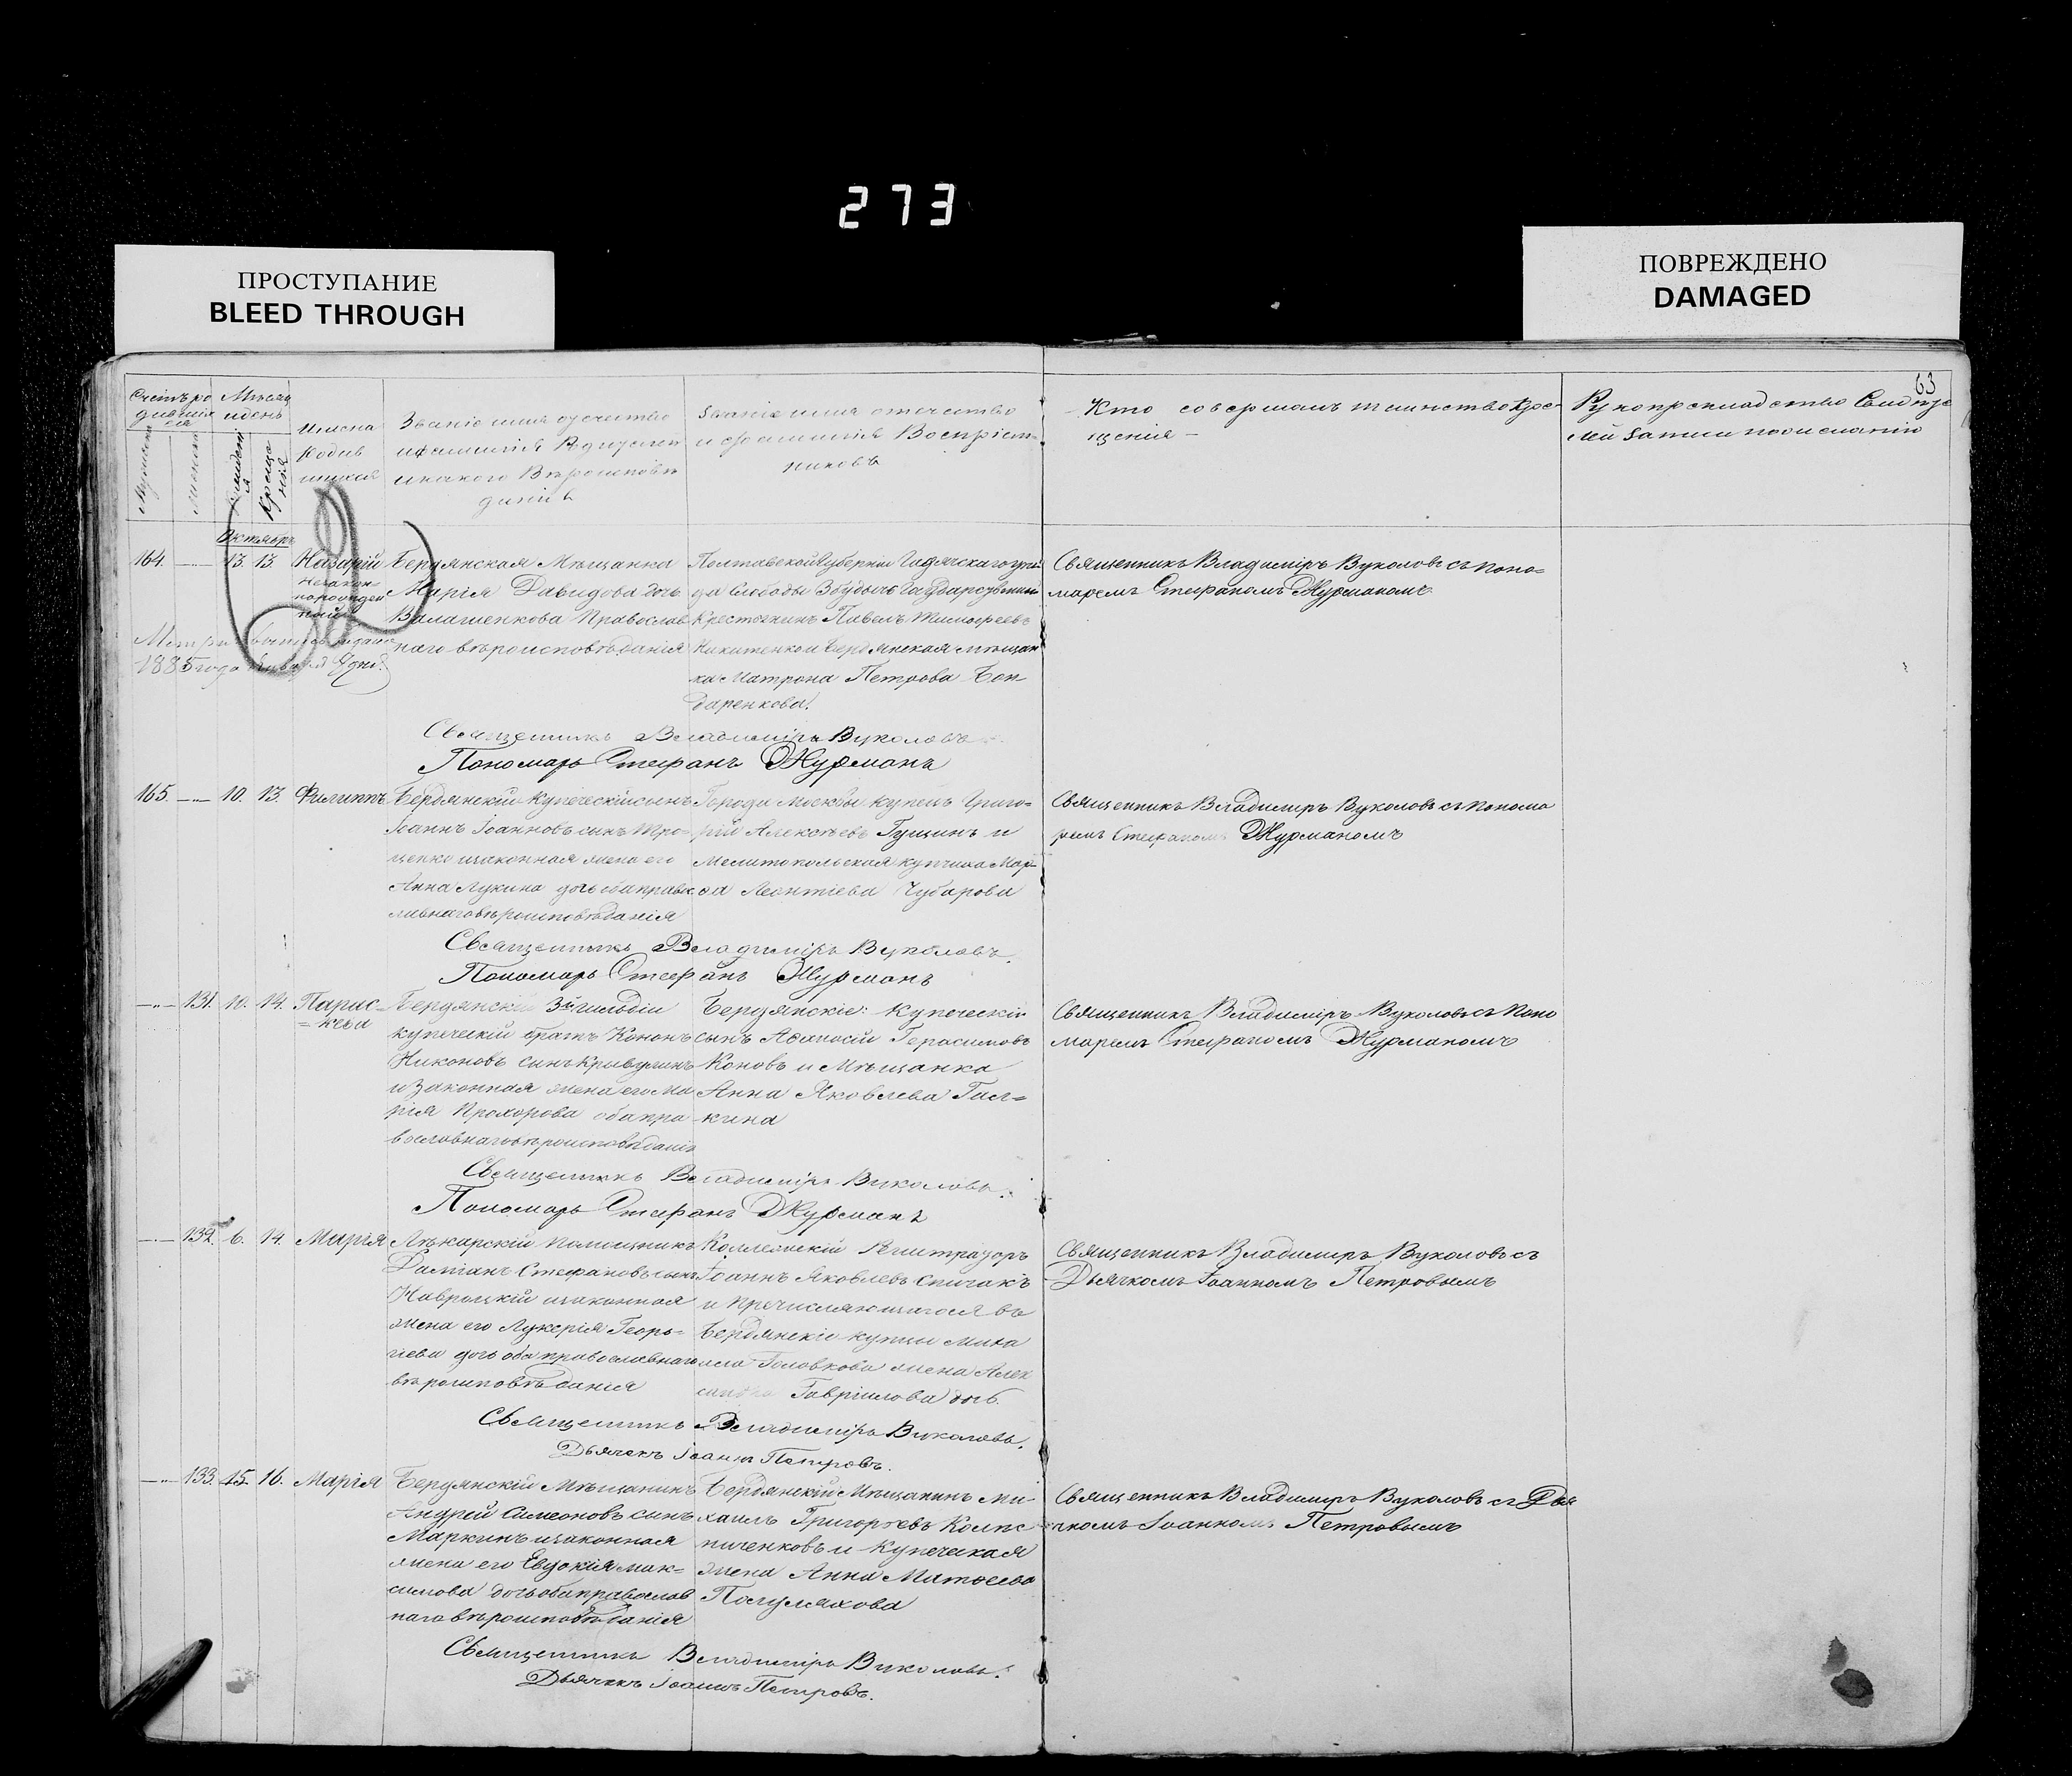 273
ПРОСТУПАНИЕ
BLEED THROUGH
ПОВРЕЖДЕНО
DAMAGED
63
Счетъ родившихся
Мѣсяцъ и день
Имена родившихся
Званіе имя отчество
и фамилія Родителей
и какого Вѣроисповѣ
данія
Званіе имя отчество
и фамилія Воспріем-
никовъ
Кто совершалъ таинство Кре-
щенія
Рукоприкладство Свидѣте
лей записи по желанію
Октябрь
164. 13. 13. Назарій
незакон
норожден
ный
Бердянская Мѣщанка
Марія Давидова дочь
Православ
наго вѣроисповѣданія
Полтавской Губерніи Гадячскаго уѣз
да Слободы
Крестьянинъ Павелъ Тимофеевъ
Никитенко и Бердянская мѣщан
ка Матрона Петрова Бон-
даренкова.
Священникъ Владиміръ Вуколовъ съ поно-
маремъ Стефаномъ Журманомъ
1885 года
Священникъ Владиміръ Вуколовъ
Пономарь Стефанъ Журманъ
165. 10. 13. Филиппъ
Бердянскій купеческій сынъ
Іоаннъ Іоанновъ сынъ Тро-
щенко и законная жена его
Анна Лукина дочь оба правос
лавнаго вѣроисповѣданія
Города Москвы купецъ Григо-
рій Алексѣевъ Гущинъ и
Мелитопольская купчиха Мар-
ѳа Леонтіева Чубарова
Священникъ Владиміръ Вуколовъ съ понома
ремъ Стефаномъ Журманомъ
Священникъ Владиміръ Вуколовъ.
Пономарь Стефанъ Журманъ
131. 10. 14. Парас-
=кева
Бердянскій 3й гильдіи
купеческій братъ Кононъ
Никоновъ сынъ
и законная жена его Ма
рія Прохорова оба пра
вославнаго вѣроисповѣданія
Бердянскіе: купеческій
сынъ Аѳанасій Герасимовъ
Коновъ и Мѣщанка
Анна Яковлева Гал-
кина
Священникъ Владиміръ Вуколовъ съ Поно
маремъ Стефаномъ Журманомъ
Священникъ Владиміръ Вуколовъ.
Пономарь Стефанъ Журманъ
132. 6. 14. Марія
Лѣкарскій помощникъ
Даміанъ Стефановъ сынъ
Навроцкій и законная
жена его Лукерія Геор-
гіева дочь оба православнаго
вѣроисповѣданія
Коллежскій Регистраторъ
Іоаннъ Яковлевъ Спичакъ
и причисляющагося въ
Бердянскіе купцы Миха
ила Головкова жена Алек
сандра Гавріилова дочь.
Священникъ Владиміръ Вуколовъ съ
Дьячкомъ Іоанномъ Петровымъ
Священникъ Владиміръ Вуколовъ.
Дьячекъ Іоаннъ Петровъ.
133. 15. 16. Марія
Бердянскій Мѣщанинъ
Андрей Симеоновъ сынъ
Маркинъ и законная
жена его Евдокія Мак-
симова дочь оба православ
наго вѣроисповѣданія
Бердянскій Мѣщанинъ Ми-
хаилъ Григорьевъ Колпс
ниченковъ и купеческая
жена Анна Матѳеева
Полумахова
Священникъ Владиміръ Вуколовъ съ Дья
чкомъ Іоанномъ Петровымъ
Священникъ Владиміръ Вуколовъ.
Дьячекъ Іоаннъ Петровъ.